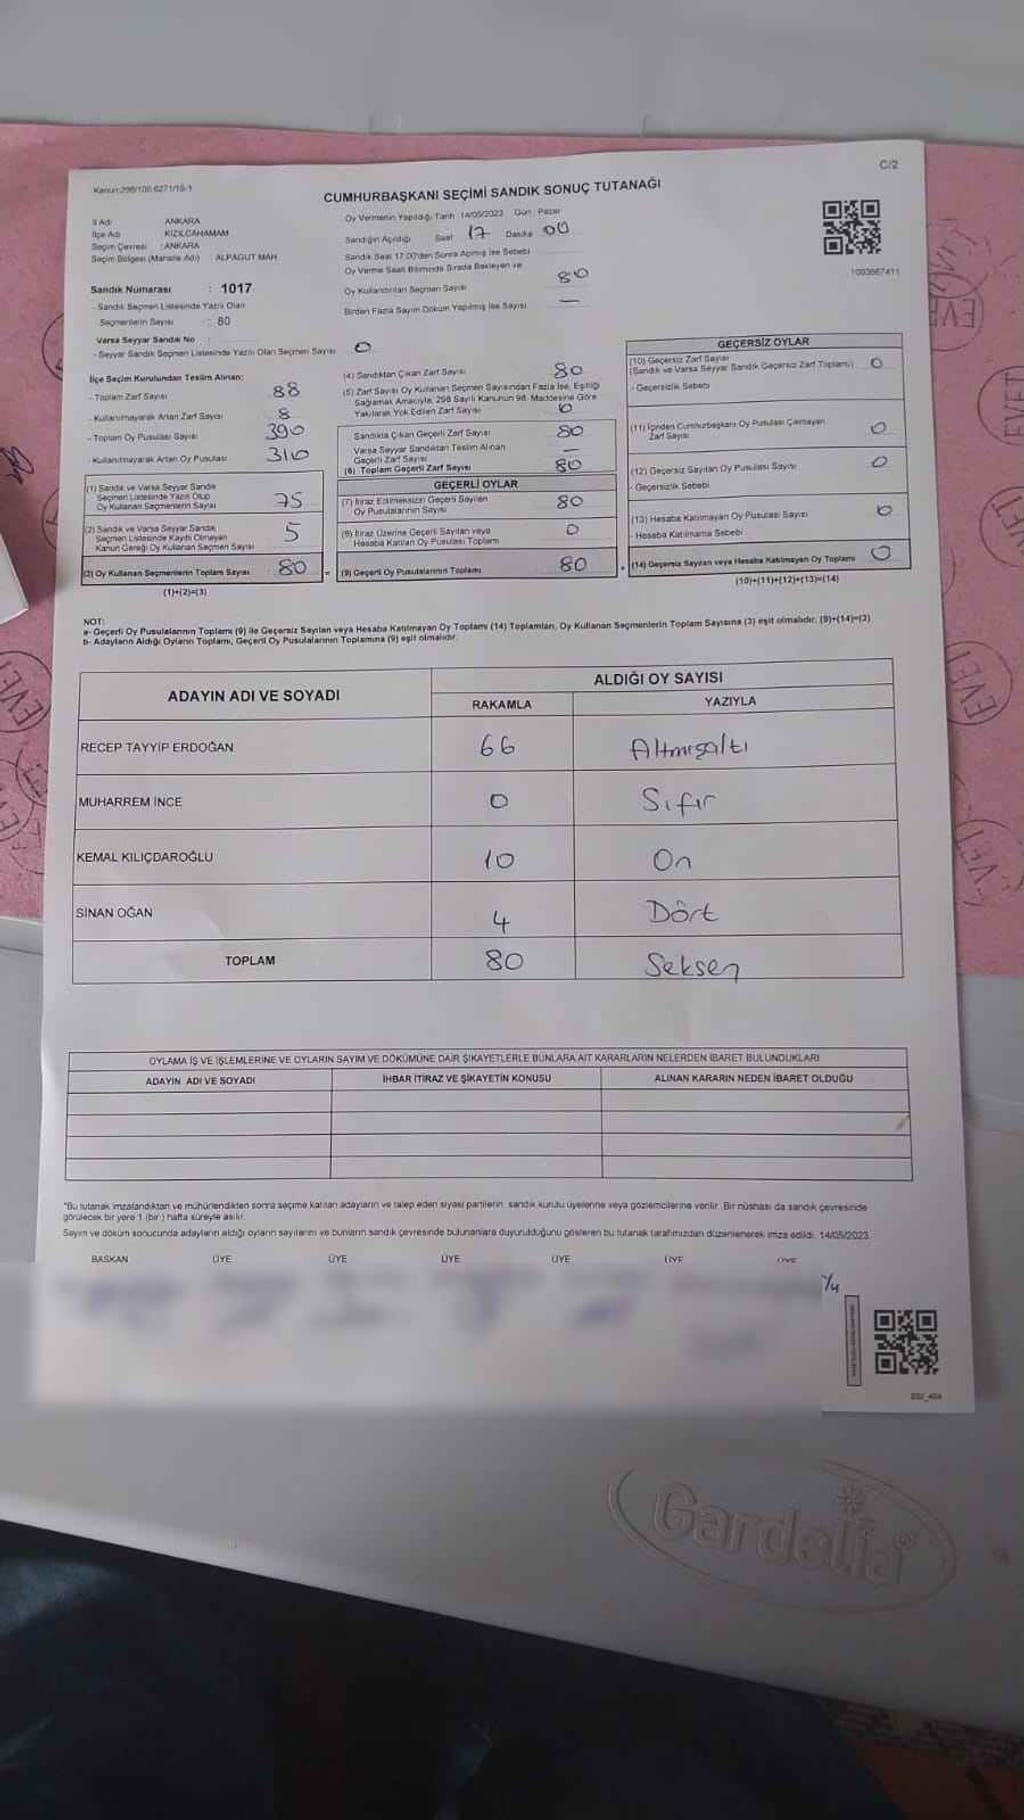 C/2
Kanun:298/105 6271/18-1
CUMHURBAŞKANI SEÇİMİ SANDIK SONUÇ TUTANAĞI
İl Adı ANKARA
İlçe Adı KIZILCAHAMAM
Seçim Çevresi : ANKARA
Seçim Bölgesi (Mahalle Adı) ALPAGUT MAH
Sandık Numarası : 1017
- Sandık Seçmen Listesinde Yazılı Olan
Seçmenlerin Sayısı : 80
Varsa Seyyar Sandık No :
- Seyyar Sandık Seçmen Listesinde Yazılı Olan Seçmen Sayısı 0
Oy Vermenin Yapıldığı Tarih :14/05/2023 Gün : Pazar
Sandığın Açıldığı Saat 17 Dakika 00
Sandık Saat 17.00'den Sonra Açılmış İse Sebebi
Oy Verme Saati Bitiminde Sırada Bekleyen ve
Oy Kullandırılan Seçmen Sayısı 80
Birden Fazla Sayım Döküm Yapılmış İse Sayısı —
1003667411
İlçe Seçim Kurulundan Teslim Alınan:
- Toplam Zarf Sayısı 88
- Kullanılmayarak Artan Zarf Sayısı 8
- Toplam Oy Pusulası Sayısı 390
- Kullanılmayarak Artan Oy Pusulası 310
(1) Sandık ve Varsa Seyyar Sandık
Seçmen Listesinde Yazılı Olup
Oy Kullanan Seçmenlerin Sayısı 75
(2) Sandık ve Varsa Seyyar Sandık
Seçmen Listesinde Kayıtlı Olmayan
Kanun Gereği Oy Kullanan Seçmen Sayısı 5
(3) Oy Kullanan Seçmenlerin Toplam Sayısı 80
(1)+(2)=(3)
(4) Sandıktan Çıkan Zarf Sayısı 80
(5) Zarf Sayısı Oy Kullanan Seçmen Sayısından Fazla İse, Eşitliği
Sağlamak Amacıyla, 298 Sayılı Kanunun 98. Maddesine Göre
Yakılarak Yok Edilen Zarf Sayısı 0
Sandıkta Çıkan Geçerli Zarf Sayısı 80
Varsa Seyyar Sandıktan Teslim Alınan
Geçerli Zarf Sayısı —
(6) Toplam Geçerli Zarf Sayısı 80
GEÇERLİ OYLAR
(7) İtiraz Edilmeksizin Geçerli Sayılan
Oy Pusulalarının Sayısı 80
(8) İtiraz Üzerine Geçerli Sayılan veya
Hesaba Katılan Oy Pusulası Toplamı 0
(9) Geçerli Oy Pusulalarının Toplamı 80
GEÇERSİZ OYLAR
(10) Geçersiz Zarf Sayısı
(Sandık ve Varsa Seyyar Sandık Geçersiz Zarf Toplamı) 0
- Geçersizlik Sebebi
(11) İçinden Cumhurbaşkanı Oy Pusulası Çıkmayan
Zarf Sayısı 0
(12) Geçersiz Sayılan Oy Pusulası Sayısı 0
- Geçersizlik Sebebi
(13) Hesaba Katılmayan Oy Pusulası Sayısı 0
- Hesaba Katılmama Sebebi
(14) Geçersiz Sayılan veya Hesaba Katılmayan Oy Toplamı 0
(10)+(11)+(12)+(13)=(14)
NOT:
a- Geçerli Oy Pusulalarının Toplamı (9) ile Geçersiz Sayılan veya Hesaba Katılmayan Oy Toplamı (14) Toplamları, Oy Kullanan Seçmenlerin Toplam Sayısına (3) eşit olmalıdır. (9)+(14)=(3)
b- Adayların Aldığı Oyların Toplamı, Geçerli Oy Pusulalarının Toplamına (9) eşit olmalıdır.
ADAYIN ADI VE SOYADI ALDIĞI OY SAYISI
RAKAMLA YAZIYLA
RECEP TAYYİP ERDOĞAN 66 Altmışaltı
MUHARREM İNCE 0 Sıfır
KEMAL KILIÇDAROĞLU 10 On
SİNAN OĞAN 4 Dört
TOPLAM 80 Seksen
OYLAMA İŞ VE İŞLEMLERİNE VE OYLARIN SAYIM VE DÖKÜMÜNE DAİR ŞİKAYETLERLE BUNLARA AİT KARARLARIN NELERDEN İBARET BULUNDUKLARI
ADAYIN ADI VE SOYADI İHBAR İTİRAZ VE ŞİKAYETİN KONUSU ALINAN KARARIN NEDEN İBARET OLDUĞU
*Bu tutanak imzalandıktan ve mühürlendikten sonra seçime katılan adayların ve talep eden siyasi partilerin sandık kurulu üyelerine veya gözlemcilerine verilir. Bir nüshası da sandık çevresinde
görülecek bir yere 1 (bir) hafta süreyle asılır.
Sayım ve döküm sonucunda adayların aldığı oyların sayılarını ve bunların sandık çevresinde bulunanlara duyurulduğunu gösteren bu tutanak tarafımızdan düzenlenerek imza edildi. 14/05/2023
BAŞKAN ÜYE ÜYE ÜYE ÜYE ÜYE ÜYE
Gardelia
EVET
EVET
EVET
EVET
EVET